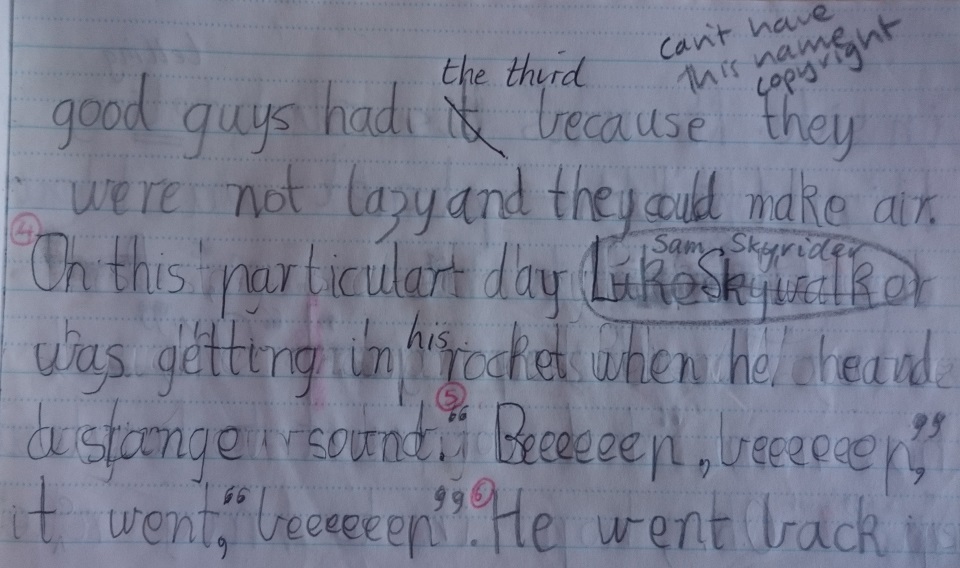 can't have
this name
copyright
the third
good guys had it because they
were not lazy and they could make air.
④ Sam Skyrider
On this particulart day LukeSkywalker
his
was getting in rocket when he heard
⑤
a strange sound. "Beeeeeep, beeeeeep,"
it went, "beeeeeep". ⑥ He went back